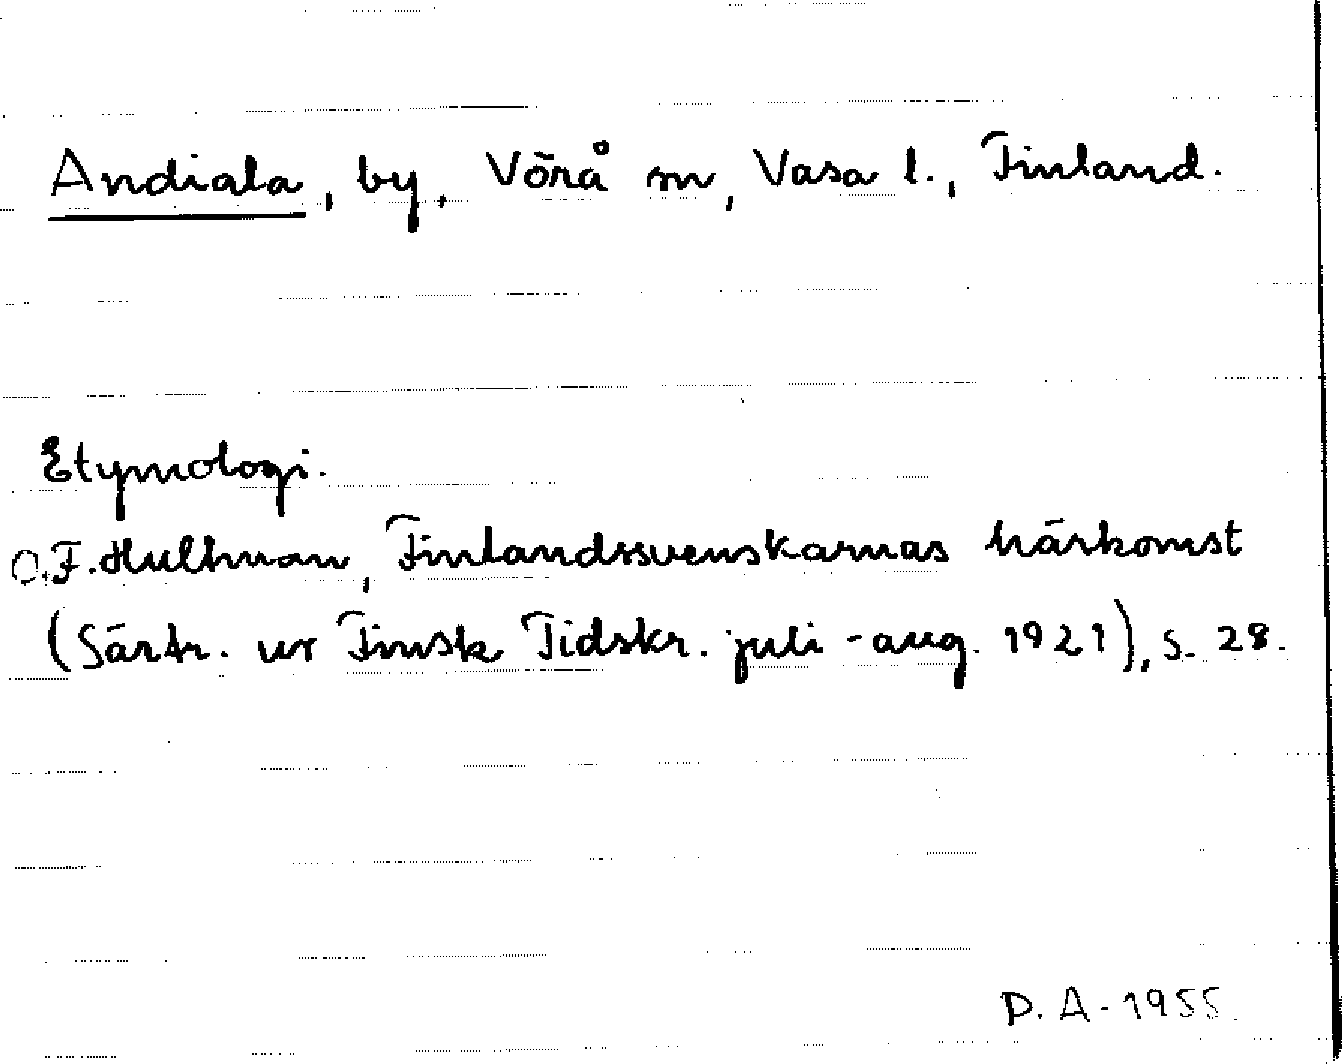 Andiala, by, Vörå sn, Vasa l., Finland.
Etymologi.
O.F. Hultman, Finlandssvenskarnas härkomst
(Särtr. ur Finsk Tidskr. juli-aug. 1921), s. 28.
P. A-1955.